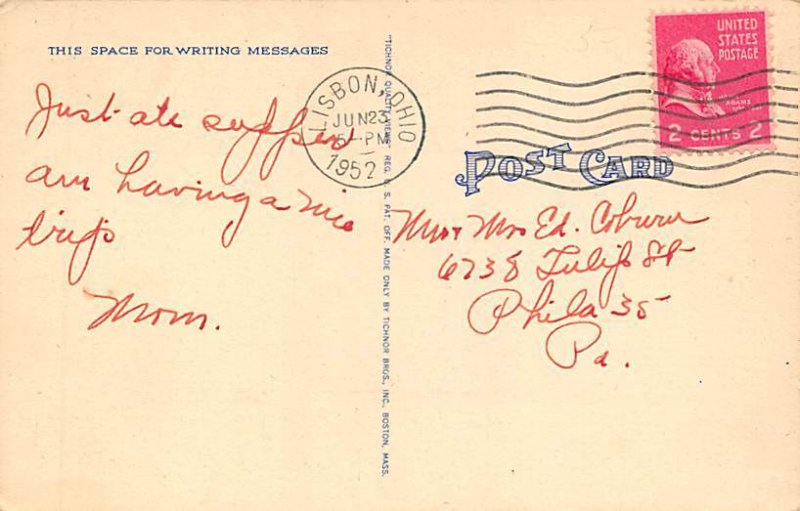 THIS SPACE FOR WRITING MESSAGES
Just ate supper
am having a nice
trip
Mom.
"TICHNOR QUALITY VIEWS" REG. U. S. PAT. OFF. MADE ONLY BY TICHNOR BROS., INC., BOSTON, MASS.
LISBON, OHIO
JUN 23
5-PM
1952
UNITED
STATES
POSTAGE
ADAMS
2 CENTS 2
POST CARD
Mr & Mrs Ed. Coburn
6738 Tulip St
Phila 35
Pa.